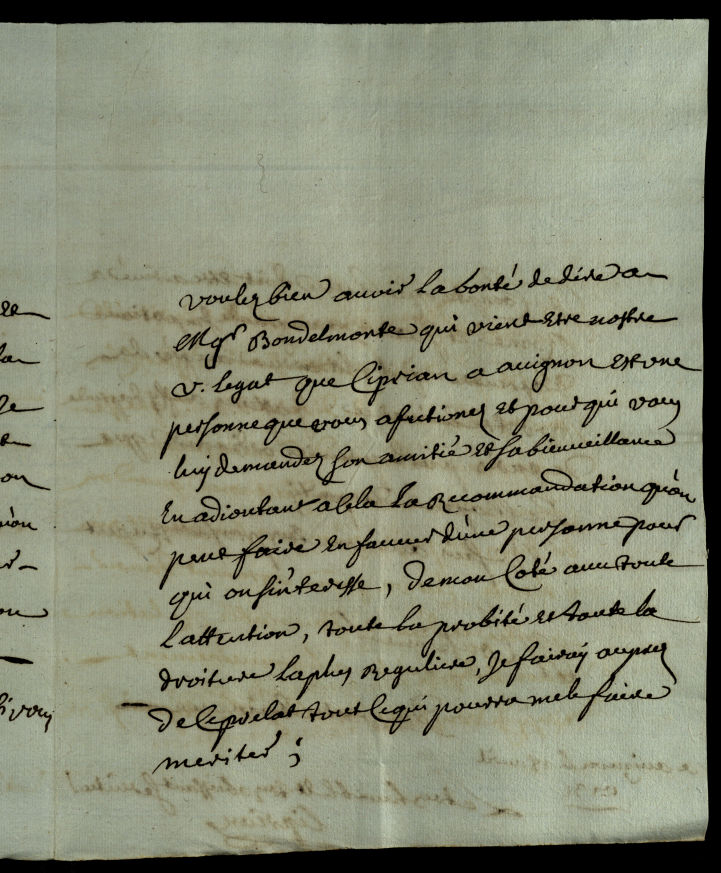 voulez bien auoir la bonté de dire a
Mgr Bondelmonte qui vient Estre nostre
v. legat que Ciprian a auignon Est une
personne que vous afectionez Et pour qui vous
luy demandez son amitié Et sa bienueillance
En adioutant a Cela La Recommandation qu'on
peut faire En faueur d'une personne pour
qui on s'interesse, de mon Coté auec toute
l'attention, toute la probité Et toute la
droiture la plus Reguliere, Je fairay aupres
de Ce prelat tout Ce qui pourra me le faire
meriter ;